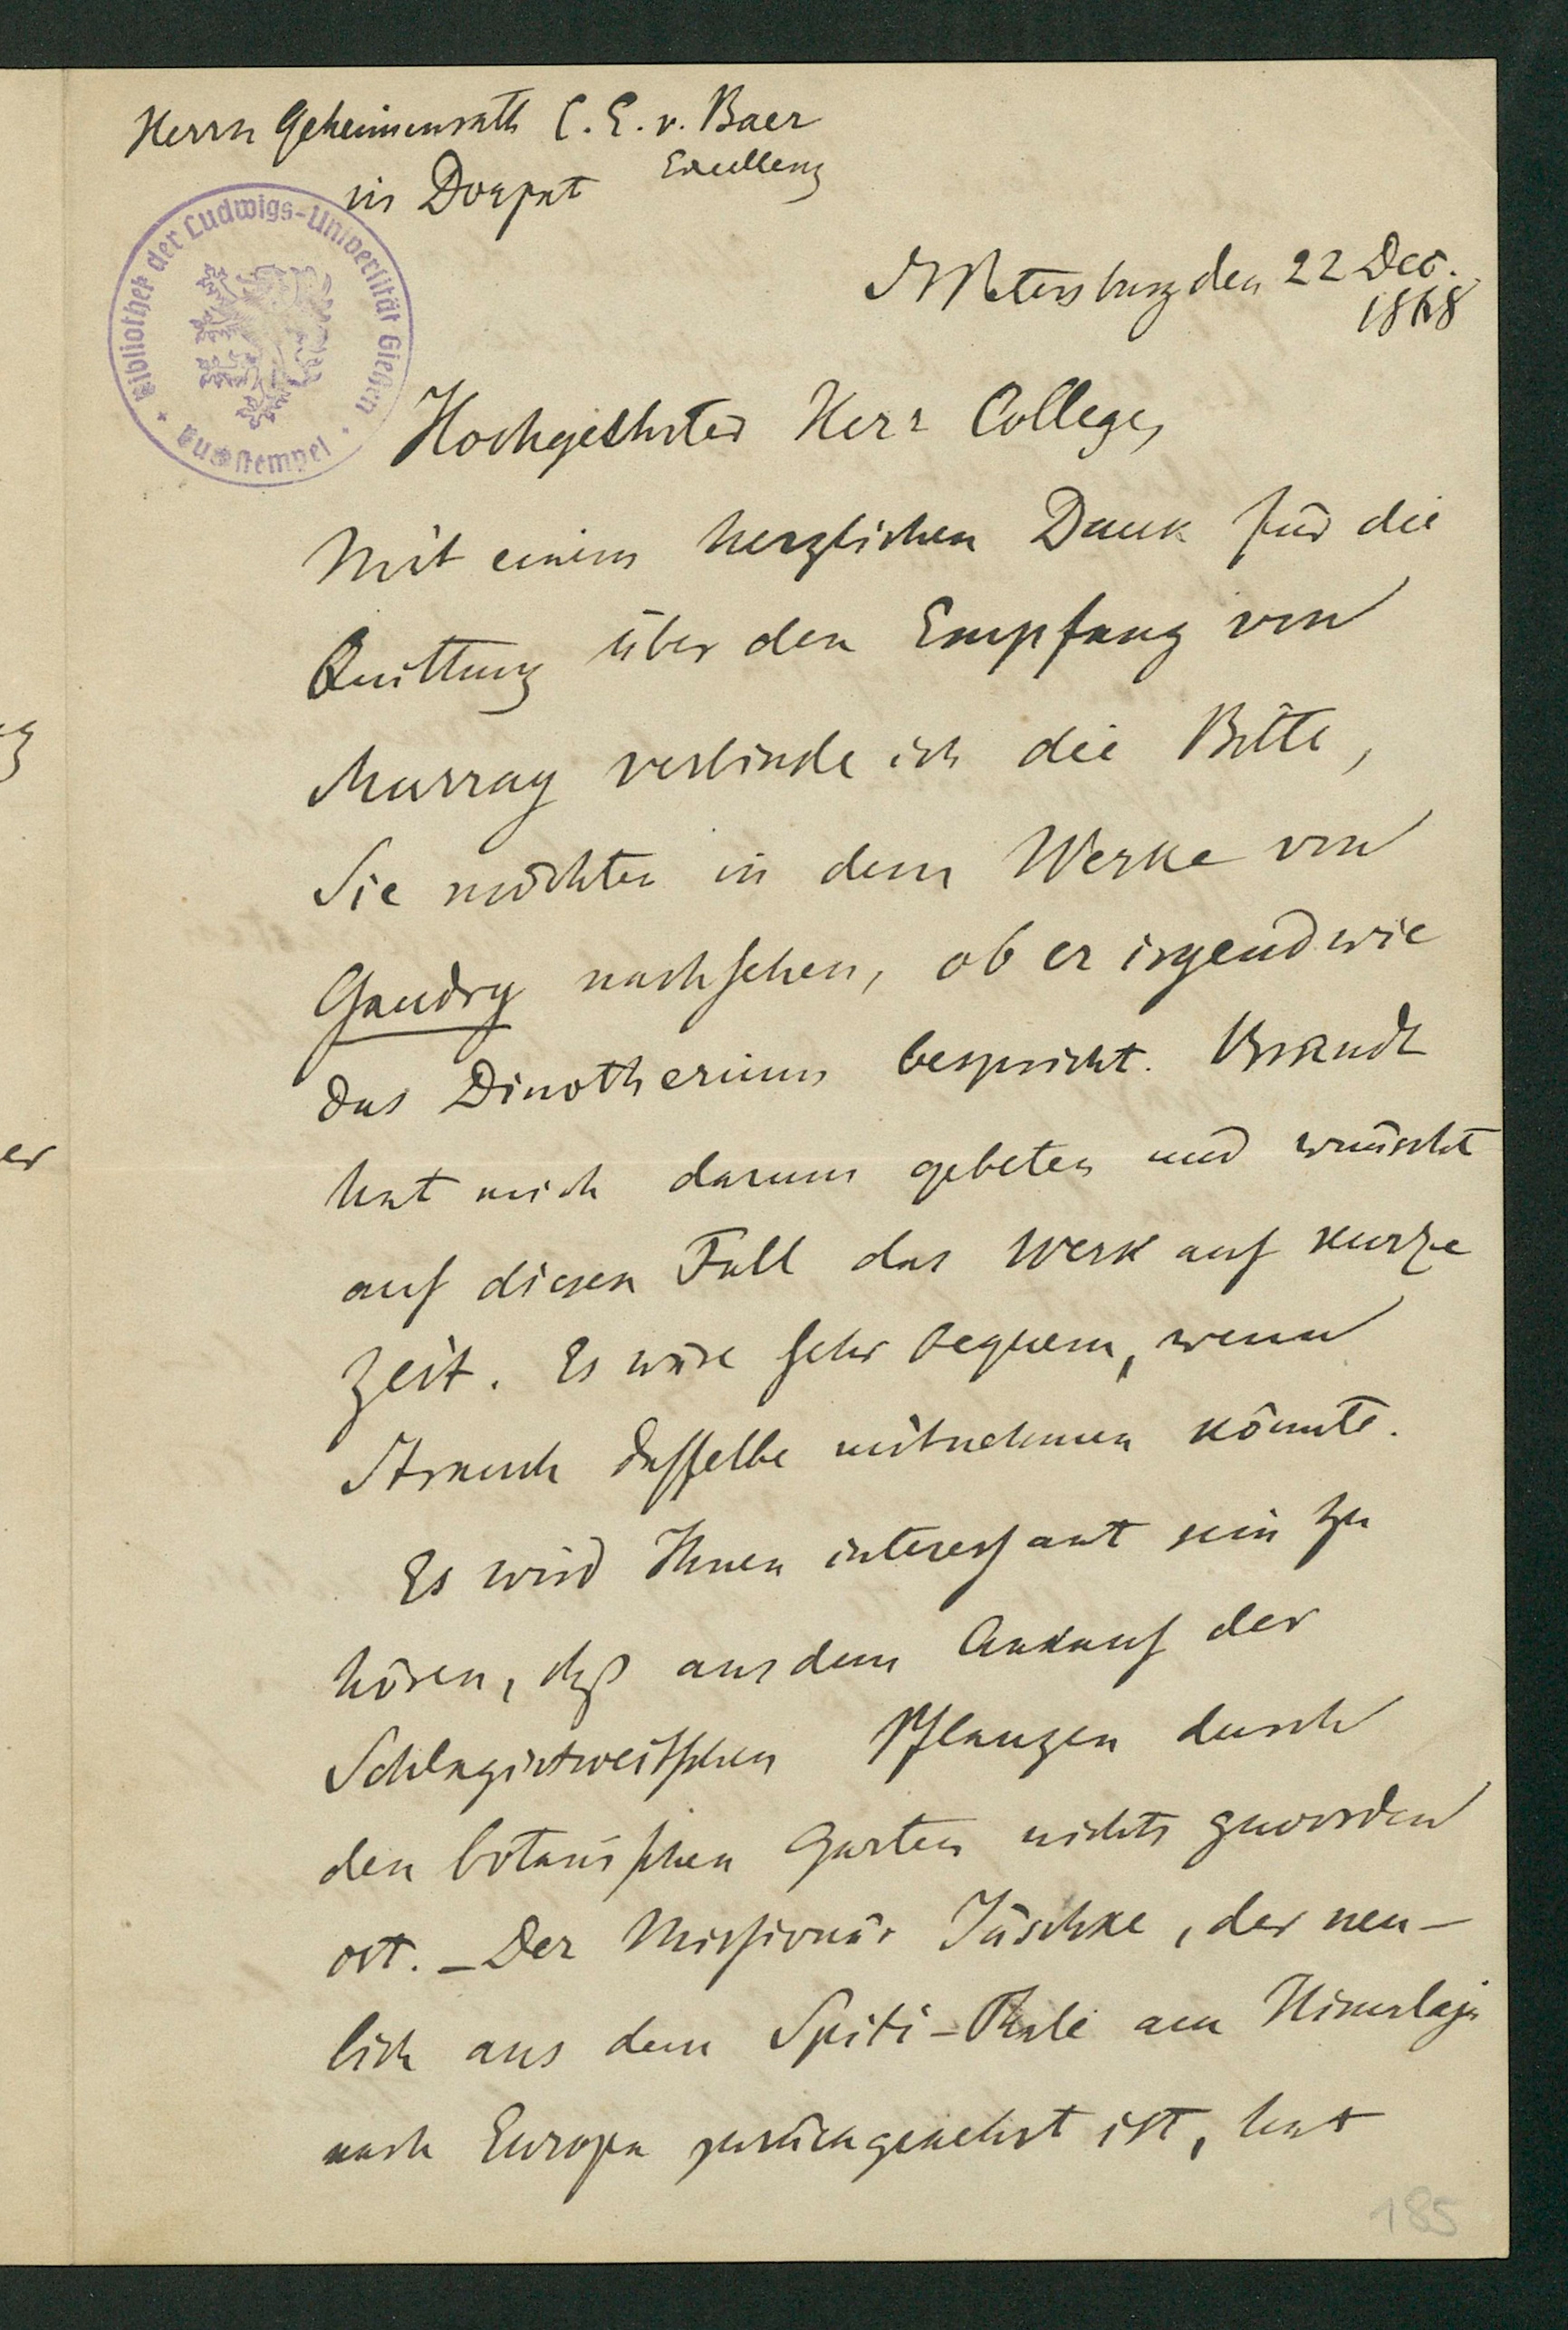 Herrn Geheimenrath C. E. v. Baer
Excellenz
in Dorpat
Bibliothek der Ludwigs-Universität Gießen
Buchstempel
St Petersburg den 22 Dec.
1868
Hochgeehrter Herr College,
Mit einem herzlichen Dank für die
Quittung über den Empfang von
Murray verbinde ich die Bitte,
Sie möchten in dem Werke von
Gaudry nachsehen, ob er irgendwie
das Dinotherium bespricht. Brandt
hat mich darum gebeten und wünscht
auf diesen Fall das Werk auf kurze
Zeit. Es wäre sehr bequem, wenn
Strauch dasselbe mitnehmen könnte.
Es wird Ihnen interessant sein zu
hören, daß aus dem Ankauf der
Schlagintweitschen Pflanzen durch
den botanischen Garten nichts geworden
ist. – Der Missionär Jäschke, der neu-
lich aus dem Spiti-Thale am Himalaja
nach Europa zurückgekehrt ist, hat
185
er